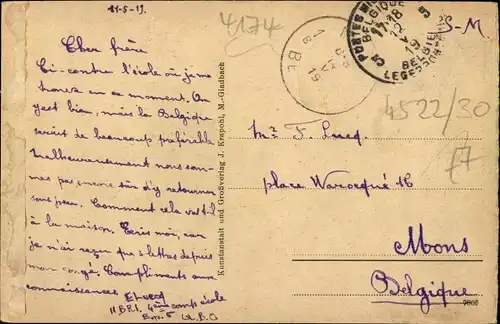 11-5-19.
4174
S.M.
Cher frère
Ci-contre l'école où je me
trouve en ce moment. On
y est bien, mais la Belgique
serait de beaucoup préférable
Malheureusement nous som-
mes pas encore sûr d'y retourner
sous peu. Comment cela va-t-il
à la maison. Ecris moi, car
je n'ai reçu que 2 lettres depuis
mon congé. Compliments aux
connaissances
4ème comp école
A.B.O
Kunstanstalt und Großverlag J. Krapohl, M.-Gladbach
POSTES MI
BELGIQUE
11-18
12
V
19
BELGIE
LEGERPOSTERIJ
4522/30
77
Mr F. Lucq.
place Warocqué 16
Mons
Belgique